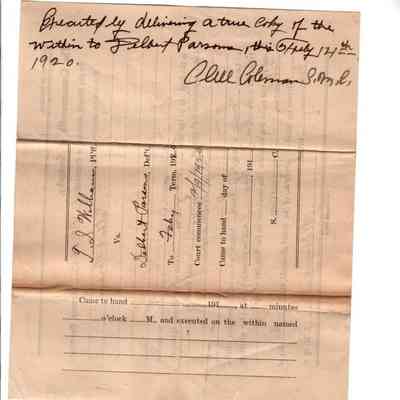 Executed by delivering a true Copy of the
within to Delbert Parsons, this July 14th
1920.
Clell Coleman S.M.C.
Williams, Pl'ff.
Vs.
Delbert Parsons Def't.
To Term, 192
Court commences
Came to hand day of
191
S. C.
Came to hand 191 , at minutes
o'clock M., and executed on the within named